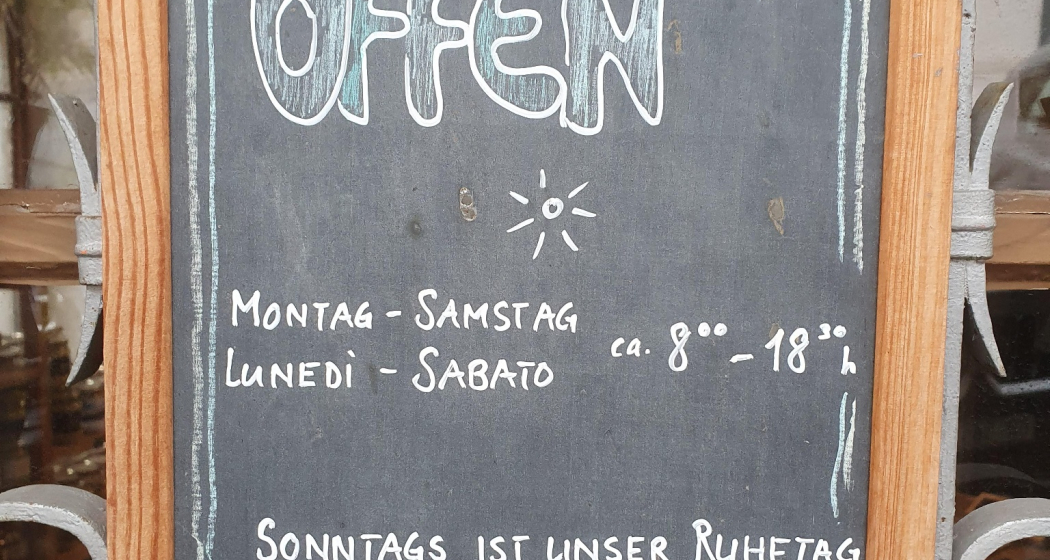 OFFEN
MONTAG - SAMSTAG
LUNEDÌ - SABATO
ca. 8⁰⁰ - 18³⁰ h
SONNTAGS IST UNSER RUHETAG